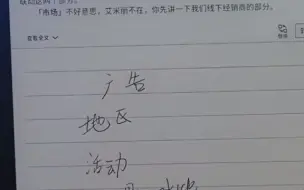 「市场」不好意思，艾米丽不在，你先讲一下我们线下经销商的部分。
查看全文
广告
地区
活动